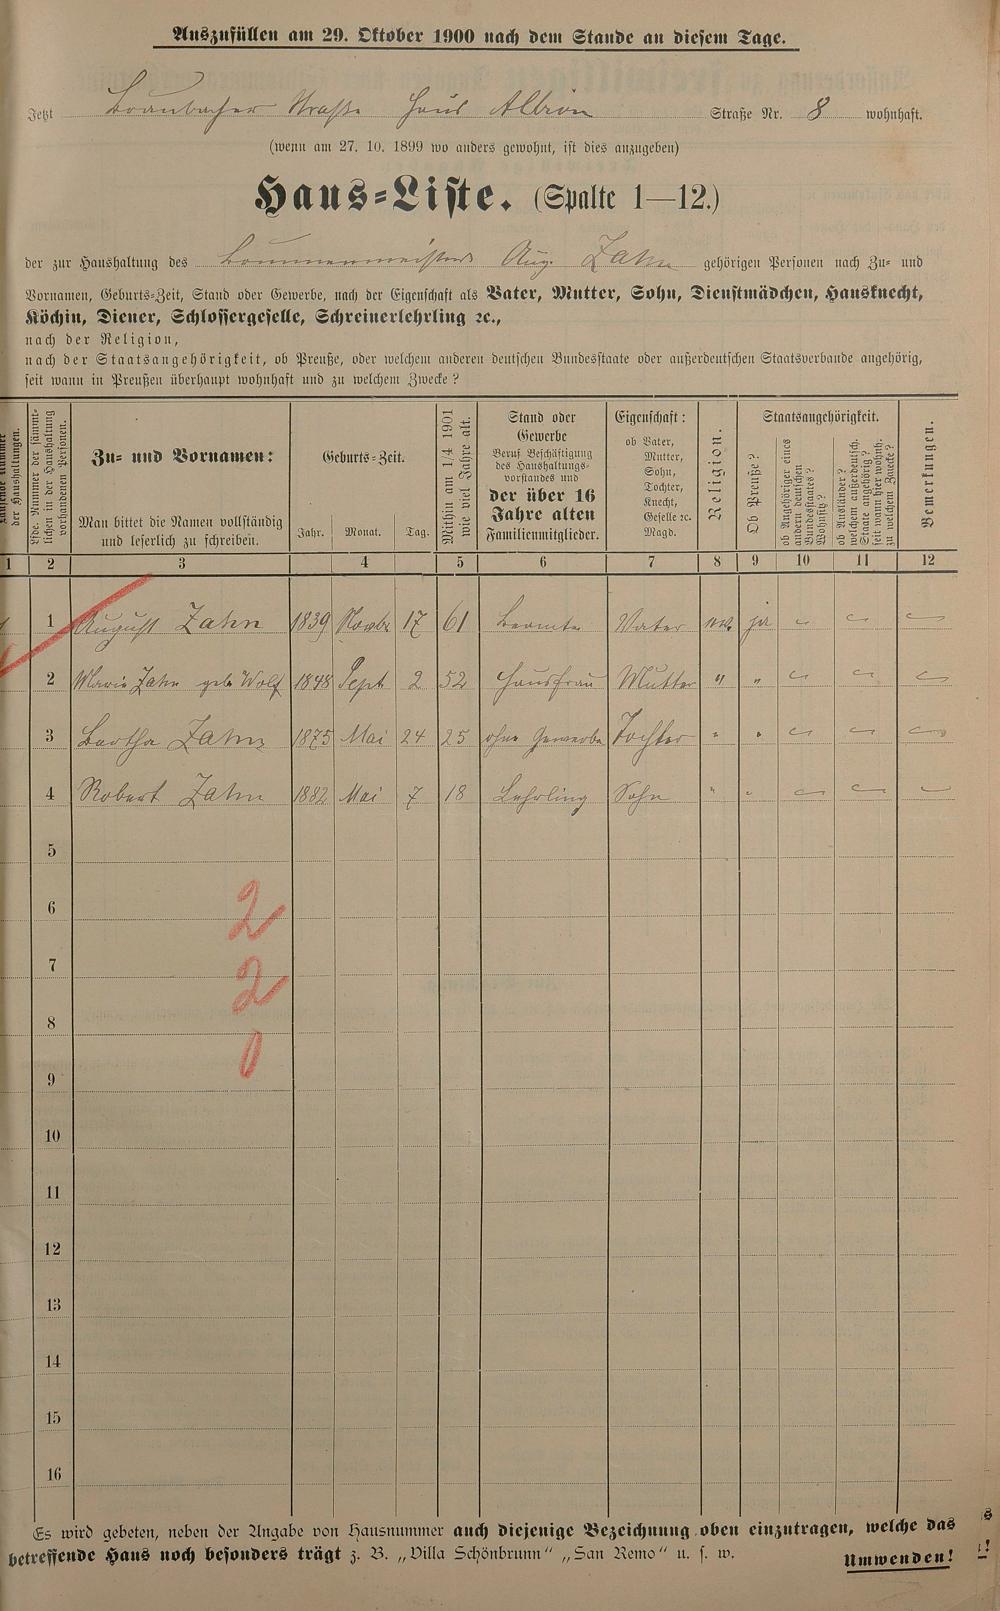 Auszufüllen am 29. Oktober 1900 nach dem Stande an diesem Tage.
Jetzt Braubacher Straße Haus Albion Straße Nr. 8 wohnhaft.
(wenn am 27. 10. 1899 wo anders gewohnt, ist dies anzugeben)
Haus-Liste. (Spalte 1—12.)
der zur Haushaltung des Brunnenmeisters Aug. Zahn gehörigen Personen nach Zu- und
Vornamen, Geburts-Zeit, Stand oder Gewerbe, nach der Eigenschaft als Vater, Mutter, Sohn, Dienstmädchen, Hausknecht,
Köchin, Diener, Schlossergeselle, Schreinerlehrling ꝛc.,
nach der Religion,
nach der Staatsangehörigkeit, ob Preuße, oder welchem anderen deutschen Bundesstaate oder außerdeutschen Staatsverbande angehörig,
seit wann in Preußen überhaupt wohnhaft und zu welchem Zwecke?
der Haushaltungen.
Lfde. Nummer der sämmt-
lichen in der Haushaltung
vorhandenen Personen.
Zu- und Vornamen:
Man bittet die Namen vollständig
und leserlich zu schreiben.
Geburts-Zeit.
Jahr. Monat. Tag.
Mithin am 1/4 1901
wie viel Jahre alt.
Stand oder
Gewerbe
Beruf Beschäftigung
des Haushaltungs-
vorstandes und
der über 16
Jahre alten
Familienmitglieder.
Eigenschaft:
ob Vater,
Mutter,
Sohn,
Tochter,
Knecht,
Geselle ꝛc.
Magd.
Religion.
Staatsangehörigkeit.
Ob Preuße?
ob Angehöriger eines
andern deutschen
Bundesstaates?
Wohnsitz?
ob Ausländer?
welchem außerdeutsch.
Staate angehörig?
seit wann hier wohnh.
zu welchem Zwecke?
Bemerkungen.
1 2 3 4 5 6 7 8 9 10 11 12
1 August Zahn 1839 Novbr 17 61 Beamter Vater ev. ja
2 Marie Zahn geb. Wolf 1848 Sept 2 52 Hausfrau Mutter " "
3 Bertha Zahn 1875 Mai 24 25 ohne Gewerbe Tochter " "
4 Robert Zahn 1882 Mai 7 18 Lehrling Sohn " "
5
6
2
7
2
8
0
9
10
11
12
13
14
15
16
Es wird gebeten, neben der Angabe von Hausnummer auch diejenige Bezeichnung oben einzutragen, welche das
betreffende Haus noch besonders trägt z. B. „Villa Schönbrunn" „San Remo" u. s. w.
Umwenden!